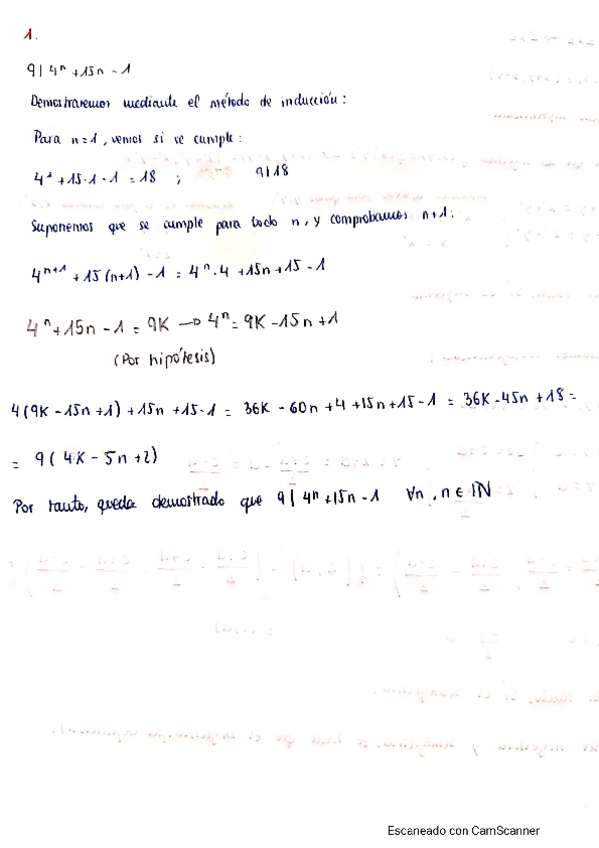 1.
9 | 4ⁿ + 15n - 1
Demostraremos mediante el método de inducción:
Para n=1, vemos si se cumple:
4¹ + 15·1 - 1 = 18 ; 9|18
Suponemos que se cumple para todo n, y comprobamos n+1:
4ⁿ⁺¹ + 15(n+1) - 1 = 4ⁿ·4 + 15n + 15 - 1
4ⁿ + 15n - 1 = 9K → 4ⁿ = 9K - 15n + 1
(Por hipótesis)
4(9K - 15n + 1) + 15n + 15 - 1 = 36K - 60n + 4 + 15n + 15 - 1 = 36K - 45n + 18 =
= 9(4K - 5n + 2)
Por tanto, queda demostrado que 9 | 4ⁿ + 15n - 1 ∀n, n ∈ ℕ
Escaneado con CamScanner